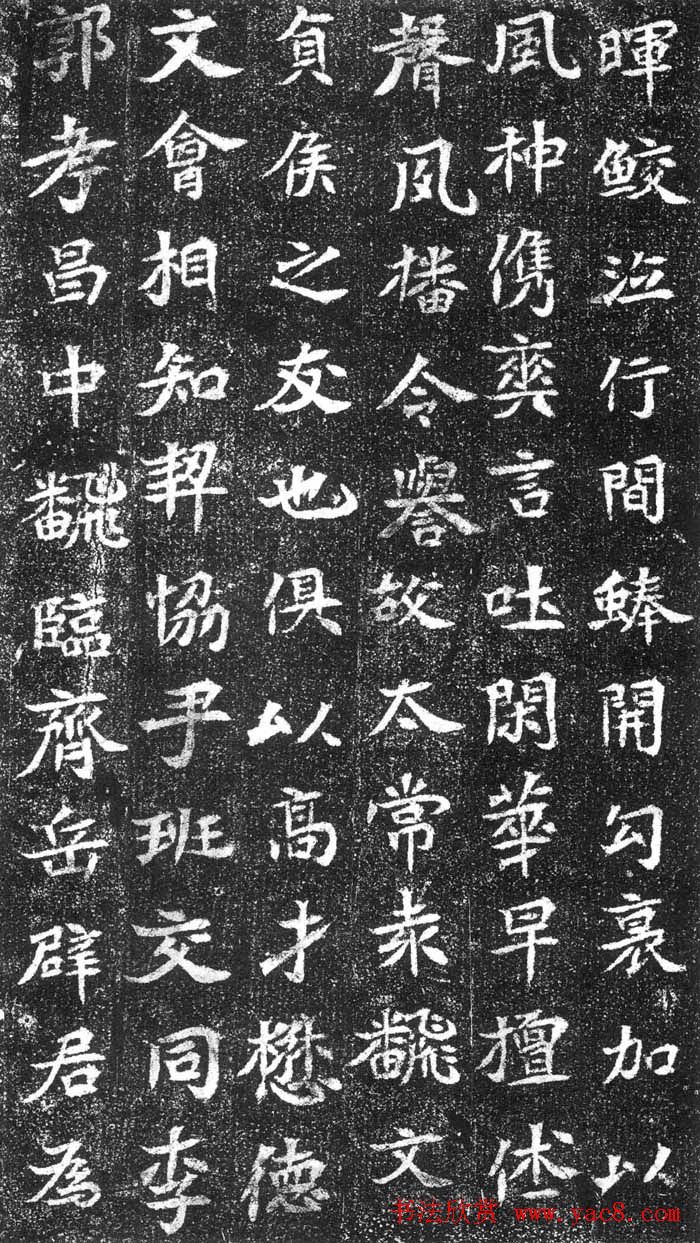 暉鮫泣行間開勾裏加以
風神儁爽言吐閑華早擅
聲夙播令譽故太常袁飜文
貞侯之友也俱以高才懋德
文會相知契恊尹班交同李
郭孝昌中飜臨齊岳辟君為
书法欣赏 www.yac8.com